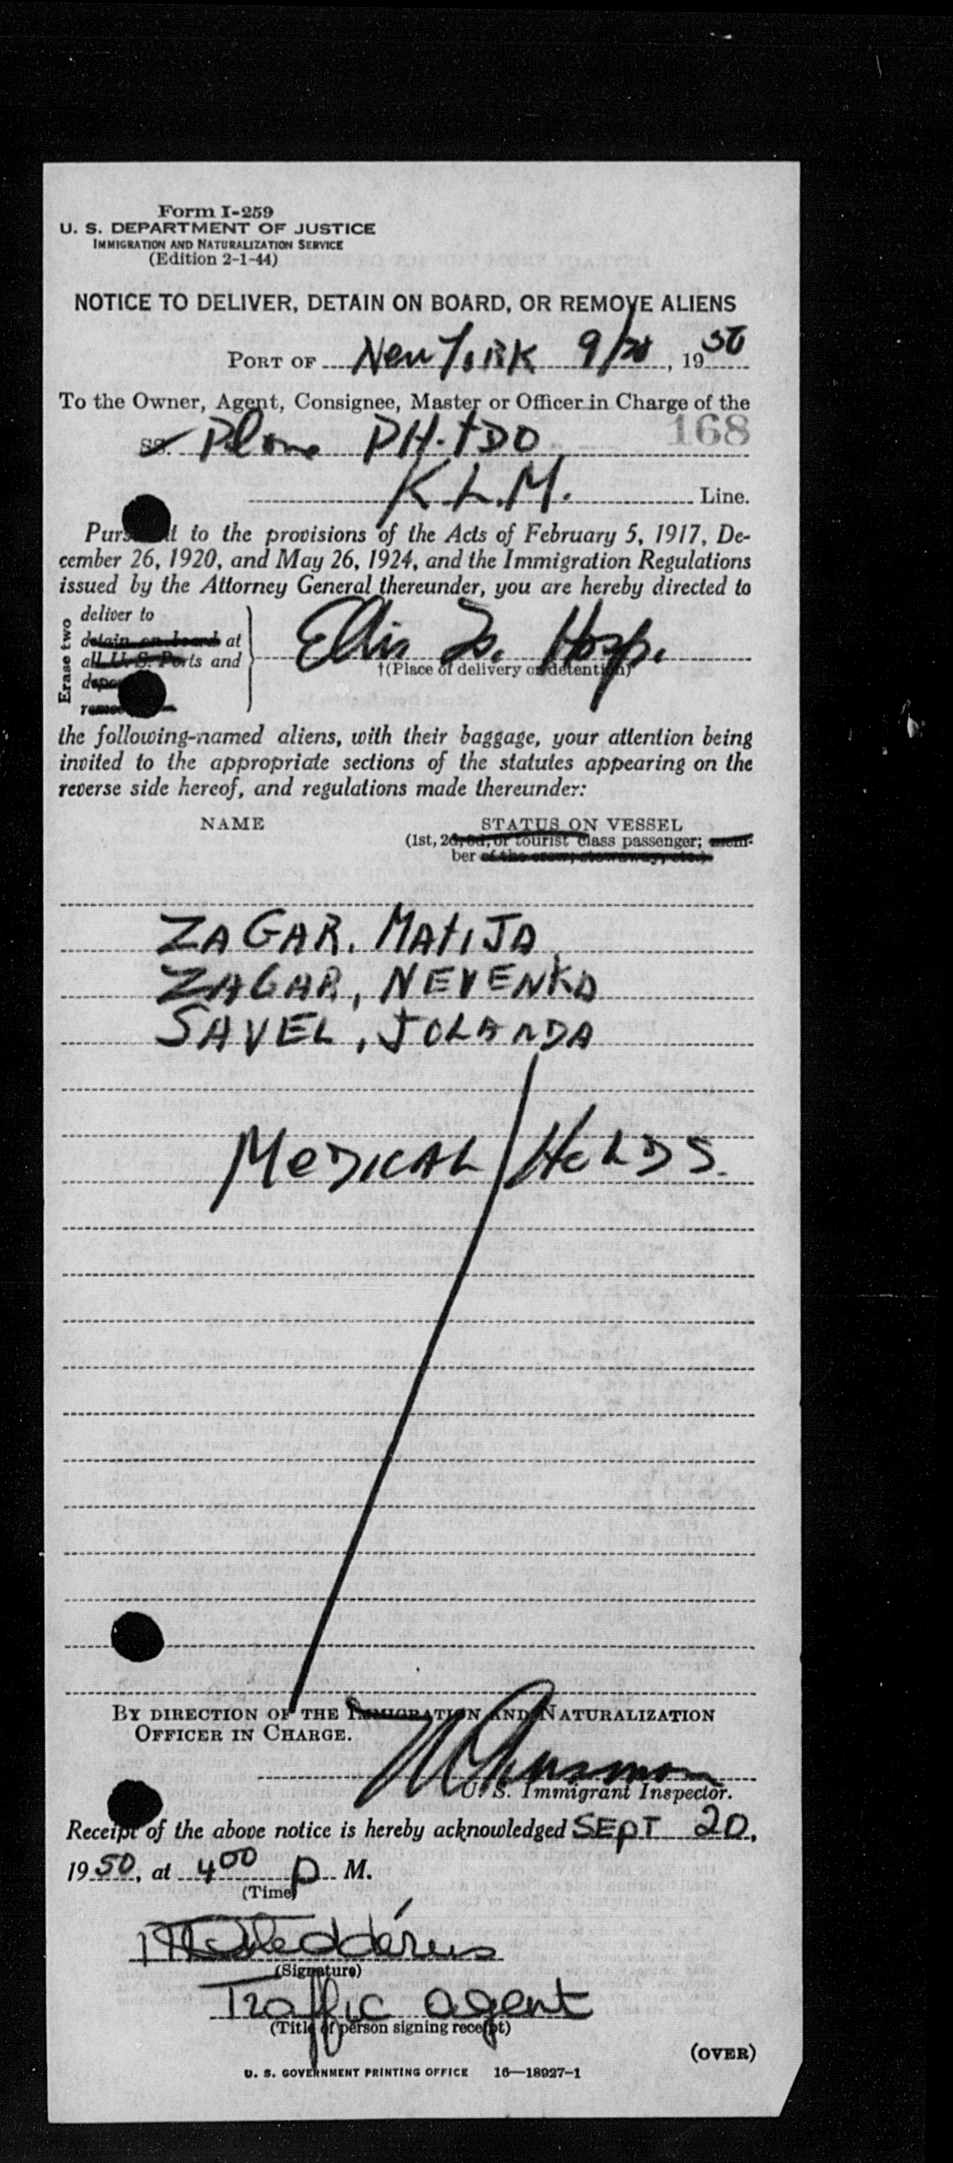 Form I-259
U. S. DEPARTMENT OF JUSTICE
IMMIGRATION AND NATURALIZATION SERVICE
(Edition 2-1-44)
NOTICE TO DELIVER, DETAIN ON BOARD, OR REMOVE ALIENS
PORT OF New York 9/20, 1950
To the Owner, Agent, Consignee, Master or Officer in Charge of the
168
SS. Plane PH-TDO
K.L.M. Line.
Pursuant to the provisions of the Acts of February 5, 1917, De-
cember 26, 1920, and May 26, 1924, and the Immigration Regulations
issued by the Attorney General thereunder, you are hereby directed to
Erase two
deliver to
detain on board at
all U. S. Ports and
Ellis Is. Hosp.
†(Place of delivery or detention)
the following-named aliens, with their baggage, your attention being
invited to the appropriate sections of the statutes appearing on the
reverse side hereof, and regulations made thereunder:
NAME STATUS ON VESSEL
(1st, 2d, 3d, or tourist class passenger; mem-
ber of the crew, stowaway, etc.)
ZAGAR, MATIJA
ZAGAR, NEVENKA
SAVEL, JOLANDA
MEDICAL HOLDS.
BY DIRECTION OF THE IMMIGRATION AND NATURALIZATION
OFFICER IN CHARGE.
U. S. Immigrant Inspector.
Receipt of the above notice is hereby acknowledged SEPT 20,
1950, at 4 00 P M.
(Time)
(Signature)
Traffic agent
(Title of person signing receipt)
(OVER)
U. S. GOVERNMENT PRINTING OFFICE 16—18927-1